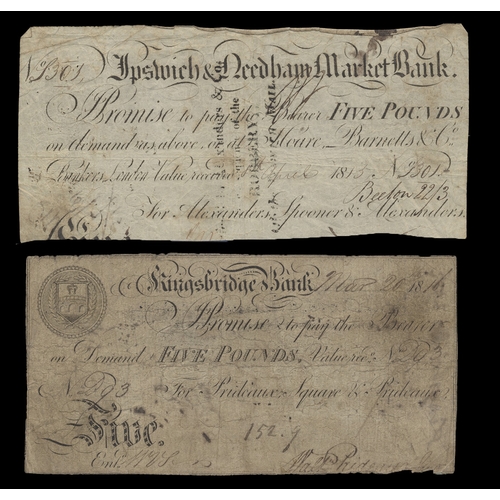 Ipswich & Needham Market Bank.
I Promise to pay the Bearer FIVE POUNDS
on demand as above or at Hoare Barnetts & Co
Bankers London Value received 1815
Beeton 22/3
For Alexanders, Spooner & Alexanders.
ROBBERY
Kingsbridge Bank Mar 20 1816
I Promise to pay the Bearer
on Demand FIVE POUNDS. Value recd. No 293
No 293 For Prideaux, Square & Prideaux
Five.
152.9